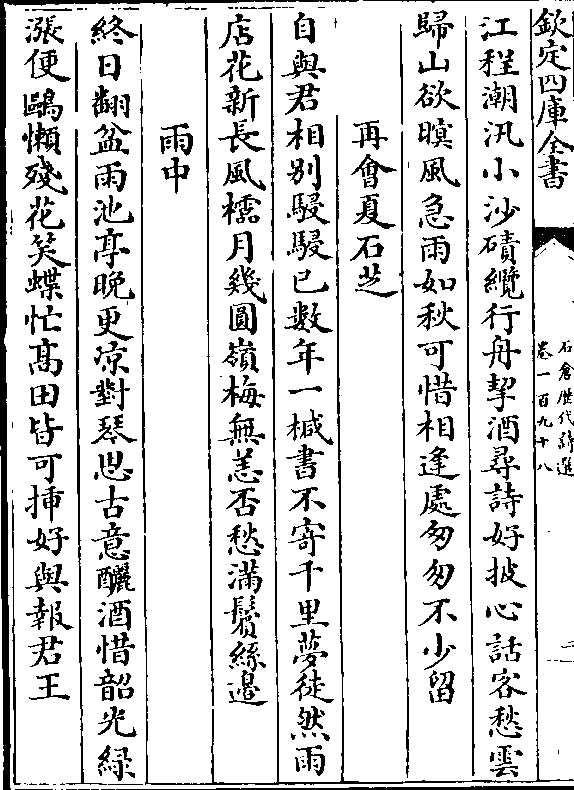 欽定四庫全書
石倉歷代詩選
卷一百九十八
二
江程潮汛小沙磧纜行舟挈酒尋詩好披心話客愁雲
歸山欲暝風急雨如秋可惜相逢處匆匆不少留
再會夏石芝
自與君相別駸駸已數年一椷書不寄千里夢徒然雨
店花新長風檐月幾圓嶺梅無恙否愁滿鬢絲邊
雨中
終日翻盆雨池亭晚更凉對琴思古意釃酒惜韶光綠
漲便鷗懶殘花笑蝶忙髙田皆可揷好與報君王